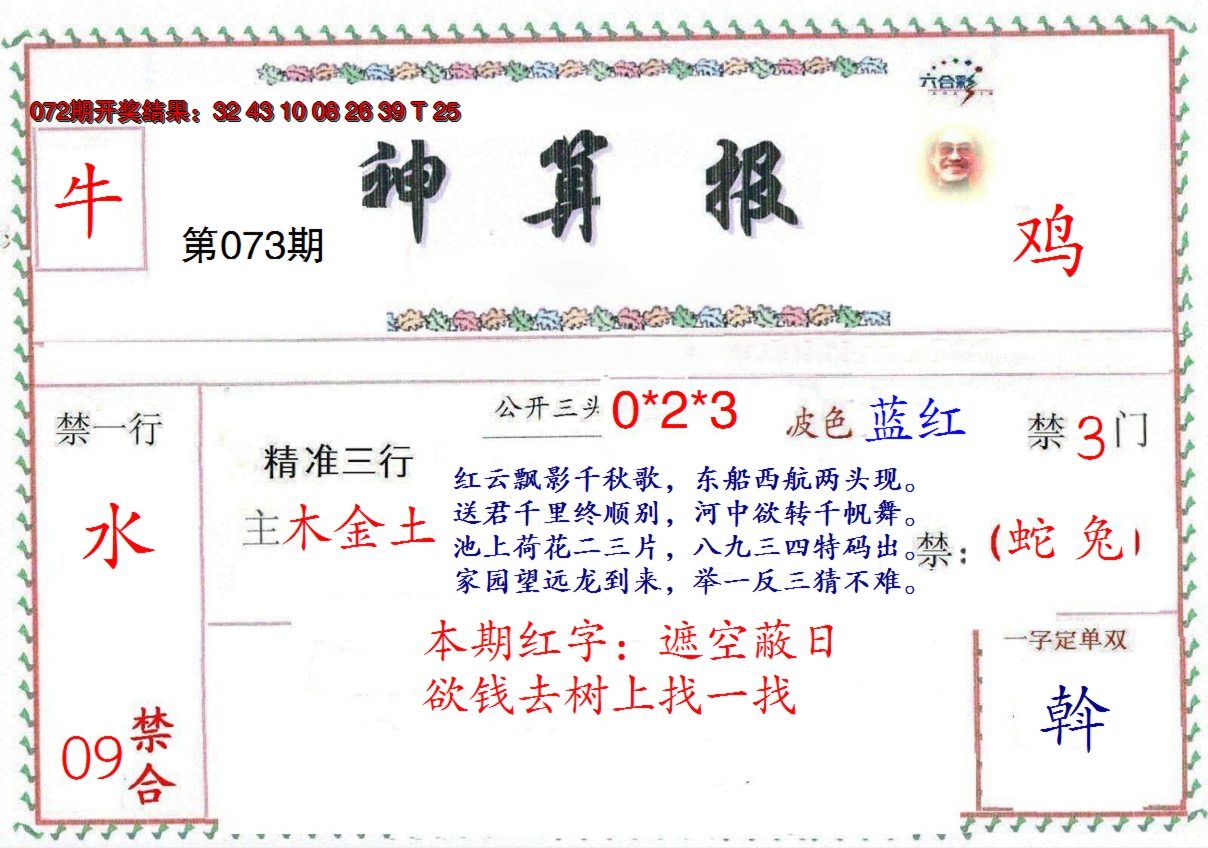 六合彩
072期开奖结果：32 43 10 08 26 39 T 25
牛
神算报
第073期
鸡
禁一行
水
09
禁合
精准三行
主木金土
公开三头 0*2*3
波色 蓝红
禁3门
禁：（蛇 兔）
红云飘影千秋歌，东船西航两头现。
送君千里终顺别，河中欲转千帆舞。
池上荷花二三片，八九三四特码出。
家园望远龙到来，举一反三猜不难。
本期红字：遮空蔽日
欲钱去树上找一找
一字定单双